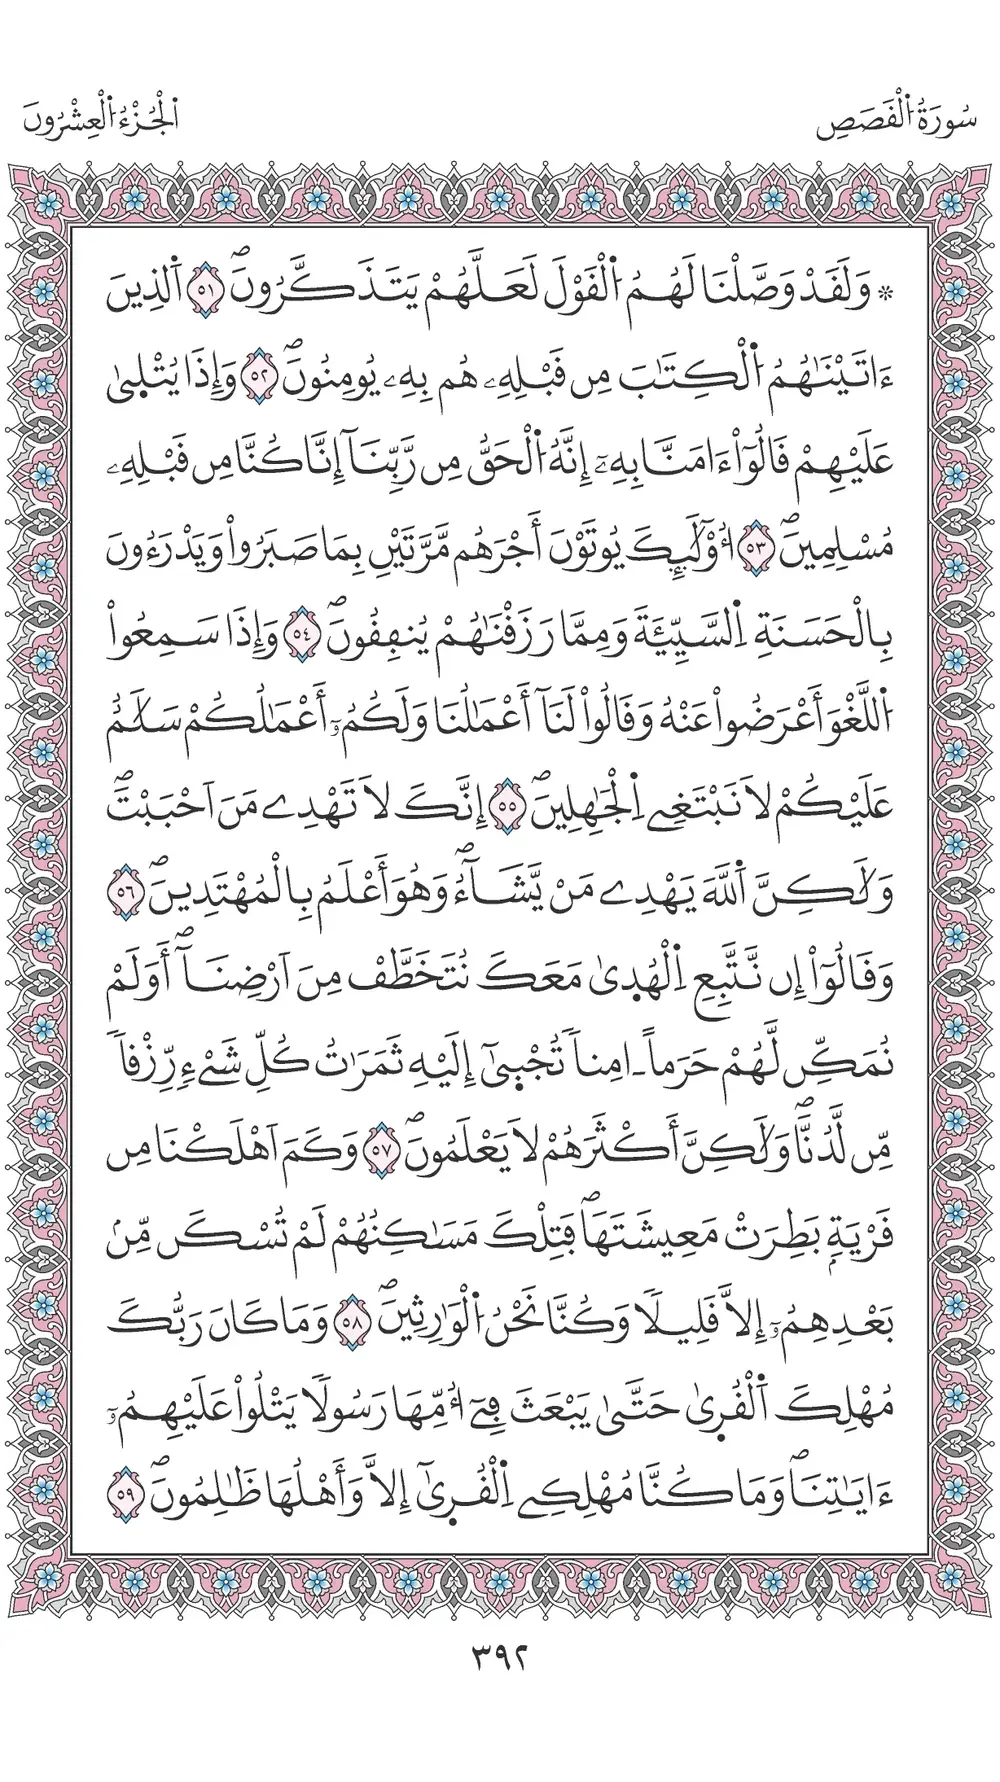 سُورَةُ اُ۬لْقَصَصِ
اَ۬لْجُزْءُ اُ۬لْعِشْرُونَ
۞ وَلَقَدْ وَصَّلْنَا لَهُمُ اُ۬لْقَوْلَ لَعَلَّهُمْ يَتَذَكَّرُونَۖ ٥١ اَ۬لذِينَ
ءَاتَيْنَٰهُمُ اُ۬لْكِتَٰبَ مِن قَبْلِهِۦ هُم بِهِۦ يُومِنُونَۖ ٥٢ وَإِذَا يُتْل۪يٰ
عَلَيْهِمْ قَالُوٓاْ ءَامَنَّا بِهِۦٓ إِنَّهُ اُ۬لْحَقُّ مِن رَّبِّنَآ إِنَّا كُنَّا مِن قَبْلِهِۦ
مُسْلِمِينَۖ ٥٣ أُوْلَٰٓئِكَ يُوتَوْنَ أَجْرَهُم مَّرَّتَيْنِ بِمَا صَبَرُواْ وَيَدْرَءُونَ
بِالْحَسَنَةِ اِ۬لسَّيِّئَةَ وَمِمَّا رَزَقْنَٰهُمْ يُنفِقُونَۖ ٥٤ وَإِذَا سَمِعُواْ
اُ۬للَّغْوَ أَعْرَضُواْ عَنْهُ وَقَالُواْ لَنَآ أَعْمَٰلُنَا وَلَكُمُۥٓ أَعْمَٰلُكُمْ سَلَٰمٌ
عَلَيْكُمْ لَا نَبْتَغِے اِ۬لْجَٰهِلِينَۖ ٥٥ إِنَّكَ لَا تَهْدِے مَنَ اَحْبَبْتَۖ
وَلَٰكِنَّ اَ۬للَّهَ يَهْدِے مَنْ يَّشَآءُۖ وَهُوَ أَعْلَمُ بِالْمُهْتَدِينَۖ ٥٦
وَقَالُوٓاْ إِن نَّتَّبِعِ اِ۬لْهُد۪يٰ مَعَكَ نُتَخَطَّفْ مِنَ اَرْضِنَآۖ أَوَلَمْ
نُمَكِّن لَّهُمْ حَرَماً اٰمِناً تُجْب۪يٰٓ إِلَيْهِ ثَمَرَٰتُ كُلِّ شَےْءٖ رِّزْقاً
مِّن لَّدُنَّاۖ وَلَٰكِنَّ أَكْثَرَهُمْ لَا يَعْلَمُونَۖ ٥٧ وَكَمَ اَهْلَكْنَا مِن
قَرْيَةِۢ بَطِرَتْ مَعِيشَتَهَاۖ فَتِلْكَ مَسَٰكِنُهُمْ لَمْ تُسْكَن مِّنۢ
بَعْدِهِمُۥٓ إِلَّا قَلِيلاٗ وَكُنَّا نَحْنُ اُ۬لْوَٰرِثِينَۖ ٥٨ وَمَا كَانَ رَبُّكَ
مُهْلِكَ اَ۬لْقُر۪يٰ حَتَّيٰ يَبْعَثَ فِےٓ أُمِّهَا رَسُولاٗ يَتْلُواْ عَلَيْهِمُۥٓ
ءَايَٰتِنَاۖ وَمَا كُنَّا مُهْلِكِے اِ۬لْقُر۪يٰٓ إِلَّا وَأَهْلُهَا ظَٰلِمُونَۖ ٥٩
٣٩٢